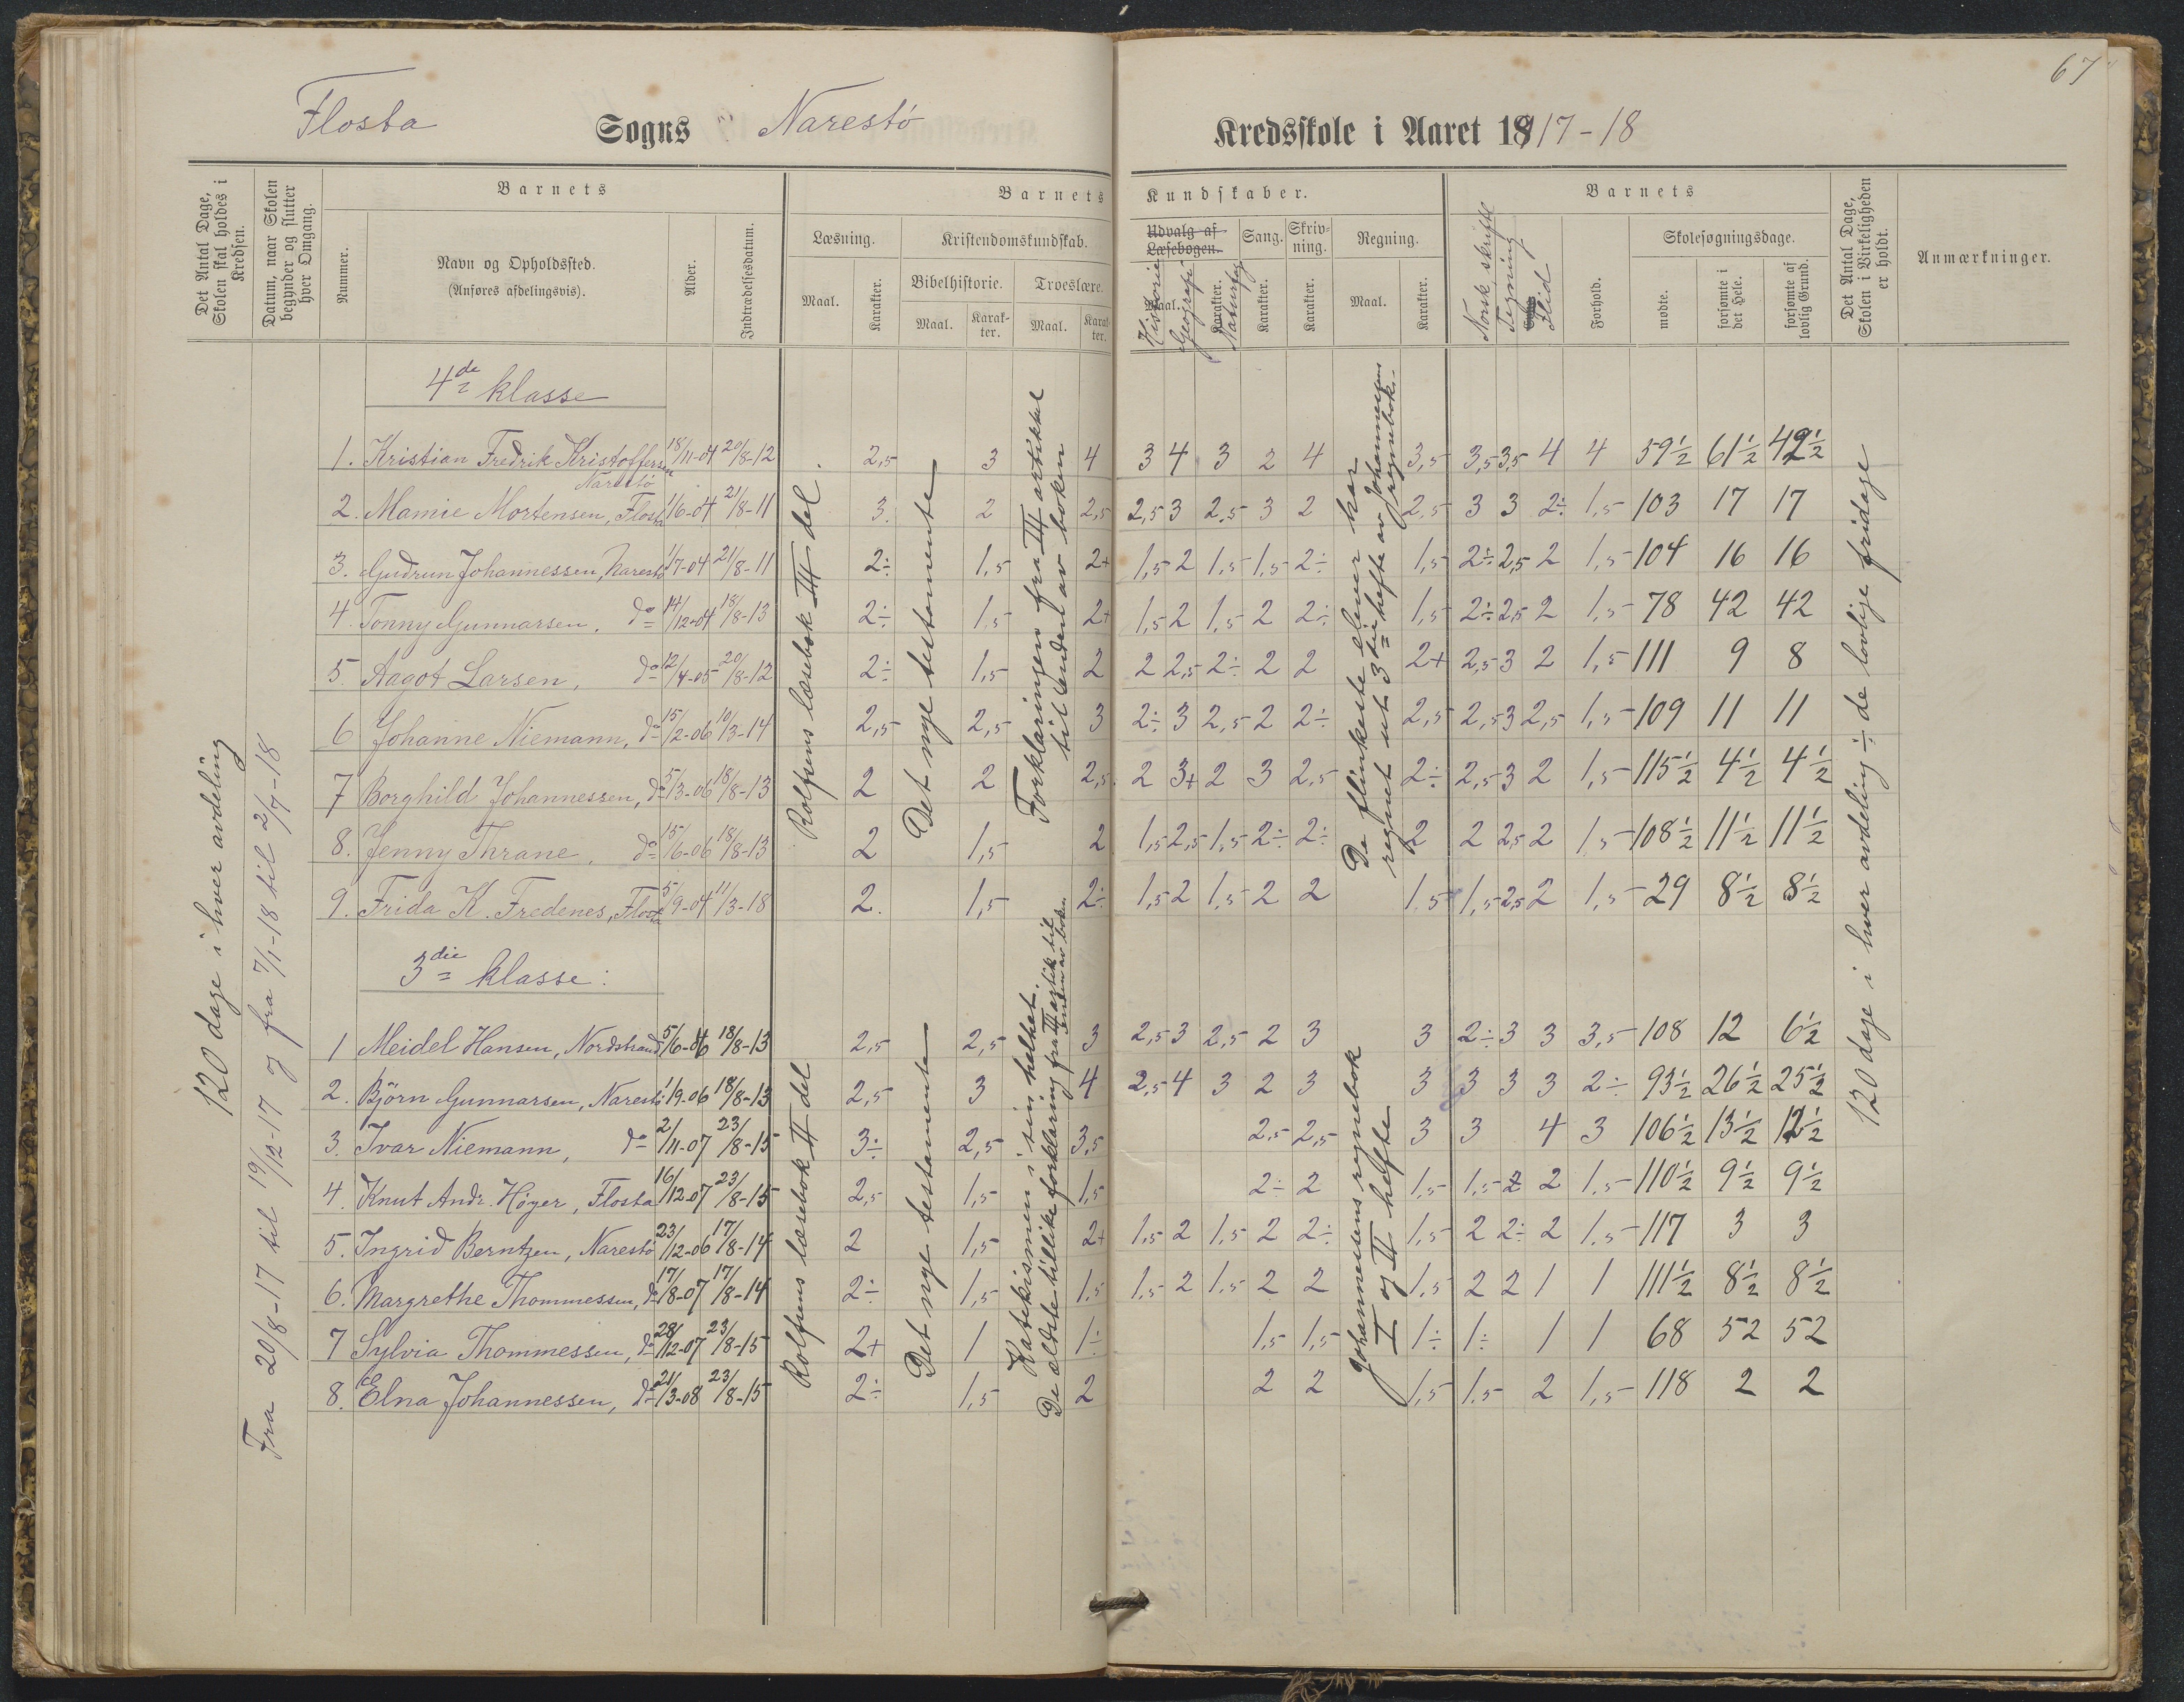 67
Flosta Sogns Narestö Kredsskole i Aaret 1917-18
Det Antal Dage, Skolen skal holdes i Kredsen.
Datum, naar Skolen begynder og slutter hver Omgang.
Barnets
Nummer.
Navn og Opholdssted.
(Anføres afdelingsvis).
Alder.
Indtrædelsesdatum.
Barnets Kundskaber.
Læsning.
Maal.
Karakter.
Kristendomskundskab.
Bibelhistorie.
Maal.
Karakter.
Troeslære.
Maal.
Karakter.
Udvalg af Læsebogen.
Maal.
Karakter.
Historie
Geografi
Naturfag
Sang.
Karakter.
Skrivning.
Karakter.
Regning.
Maal.
Karakter.
Barnets
Norsk skriftl
Tegning
Flid
Forhold.
Skolesøgningsdage.
mødte.
forsømte i det Hele.
forsømte af lovlig Grund.
Det Antal Dage, Skolen i Virkeligheden er holdt.
Anmærkninger.
120 dage i hver avdeling
Fra 20/8-17 til 19/12-17 og fra 7/1-18 til 2/7-18
4de klasse
Rolfsens læsebok III del
Det nye testamente
Forklaringen fra III artikkel til enden av boken
De flinkeste elever har regnet ut 3die hefte av Johannesens regnebok.
120 dage i hver avdeling ÷ de lovlige fridage
1. Kristian Fredrik Kristoffersen Narestö 18/11-04 20/8-12 2,5 3 4 3 4 3 2 4 3,5 3,5 3,5 4 4 59½ 61½ 42½
2. Mamie Mortensen, Flosta 1/6-04 21/8-11 3 2 2,5 2,5 3 2,5 3 2 2,5 3 3 2÷ 1,5 103 17 17
3. Gudrun Johannessen, Narestö 1/7-04 21/8-11 2÷ 1,5 2+ 1,5 2 1,5 1,5 2÷ 1,5 2÷ 2,5 2 1,5 104 16 16
4. Tonny Gunnarsen, do 14/12-04 18/8-13 2÷ 1,5 2+ 1,5 2 1,5 2 2÷ 1,5 2÷ 2,5 2 1,5 78 42 42
5. Aagot Larsen, do 12/4-05 20/8-12 2÷ 1,5 2 2 2,5 2÷ 2 2 2+ 2,5 3 2 1,5 111 9 8
6 Johanne Niemann, do 15/2-06 10/3-14 2,5 2,5 3 2÷ 3 2,5 2 2÷ 2,5 2,5 3 2,5 1,5 109 11 11
7 Borghild Johannessen, do 5/3-06 18/8-13 2 2 2,5 2 3+ 2 3 2,5 2÷ 2,5 3 2 1,5 115½ 4½ 4½
8. Jenny Thrane, do 15/6-06 18/8-13 2 1,5 2 1,5 2,5 1,5 2÷ 2÷ 2 2 2,5 2 1,5 108½ 11½ 11½
9. Frida K. Fredenes, Flosta 5/9-04 11/3-18 2. 1,5 2÷ 1,5 2 1,5 2 2 1,5 1,5 2,5 2 1,5 29 8½ 8½
3die klasse:
Rolfsens læsebok II del
Det nye testamente
Katekismen i sin helhet.
De ældste tillike forklaring fra III artik til enden av boken
Johannessens regnebok I og II hefte
1 Meidel Hansen, Nordstrand 5/6-06 18/8-13 2,5 2,5 3 2,5 3 2,5 2 3 3 2÷ 3 3 3,5 108 12 6½
2. Björn Gunnarsen, Narestö 1/9-06 18/8-13 2,5 3 4 2,5 4 3 2 3 3 3 3 3 2÷ 93½ 26½ 25½
3. Ivar Niemann, do 2/11-07 23/8-15 3÷ 2,5 3,5 2,5 2,5 3 3 4 3 106½ 13½ 12½
4. Knut Andr. Höyer, Flosta 16/12-07 23/8-15 2,5 1,5 1,5 2÷ 2 1,5 1,5 2 2 1,5 110½ 9½ 9½
5. Ingrid Berntzen, Narestö 23/12-06 17/8-14 2 1,5 2+ 1,5 2 1,5 2 2÷ 1,5 2 2÷ 2 1,5 117 3 3
6. Margrethe Thommessen, do 17/8-07 17/8-14 2÷ 1,5 1,5 1,5 2 1,5 2 2 1,5 2 2 1 1 111½ 8½ 8½
7 Sylvia Thommessen, do 28/12-07 23/8-15 2+ 1 1÷ 1,5 1,5 1÷ 1÷ 1 1 68 52 52
8. Elna Johannessen, do 21/3-08 23/8-15 2÷ 1,5 2 2 2 1,5 1,5 2 1,5 118 2 2